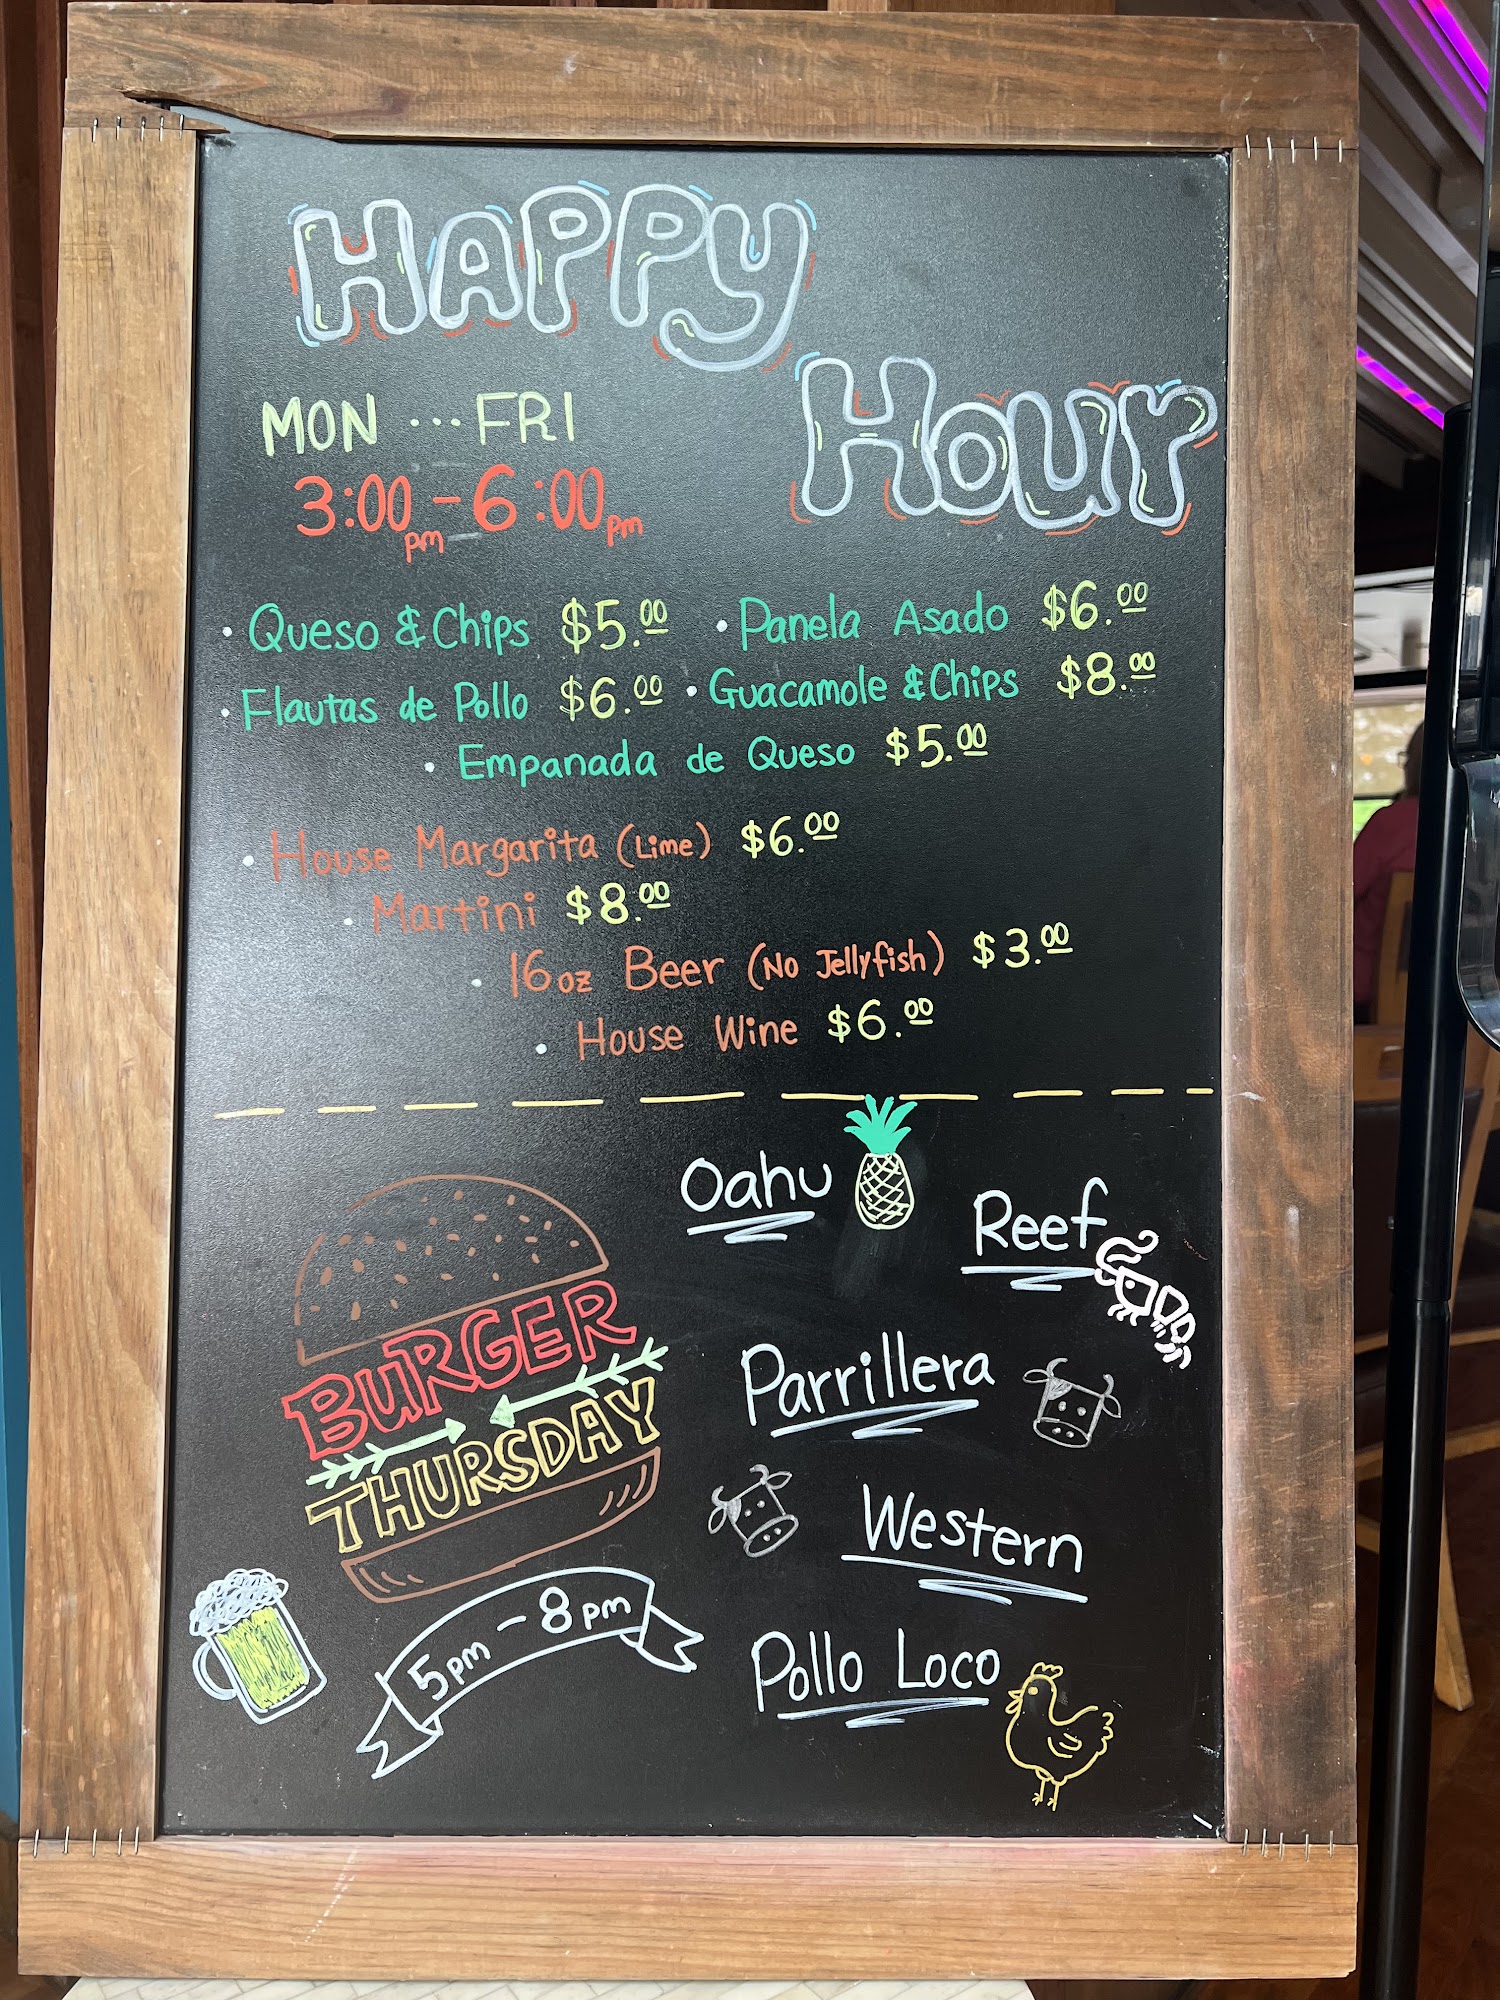 Happy
Hour
MON ... FRI
3:00pm - 6:00pm
• Queso & Chips $5.00 • Panela Asado $6.00
• Flautas de Pollo $6.00 • Guacamole & Chips $8.00
• Empanada de Queso $5.00
• House Margarita (Lime) $6.00
• Martini $8.00
• 16oz Beer (No Jellyfish) $3.00
• House Wine $6.00
BURGER
THURSDAY
5pm - 8pm
Oahu
Reef
Parrillera
Western
Pollo Loco